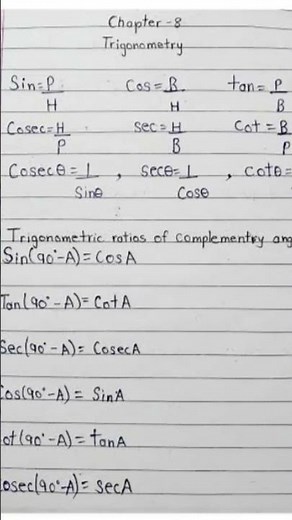 Chapter-8
Trigonometry
Sin=P/H Cos=B/H tan=P/B
Cosec=H/P sec=H/B Cot=B/P
Cosecθ=1/Sinθ , secθ=1/Cosθ , cotθ=
Trigonometric ratios of complementry ang
Sin(90°-A)=CosA
Tan(90°-A)=CotA
Sec(90°-A)=CosecA
Cos(90°-A)=SinA
Cot(90°-A)=tanA
Cosec(90°-A)=secA